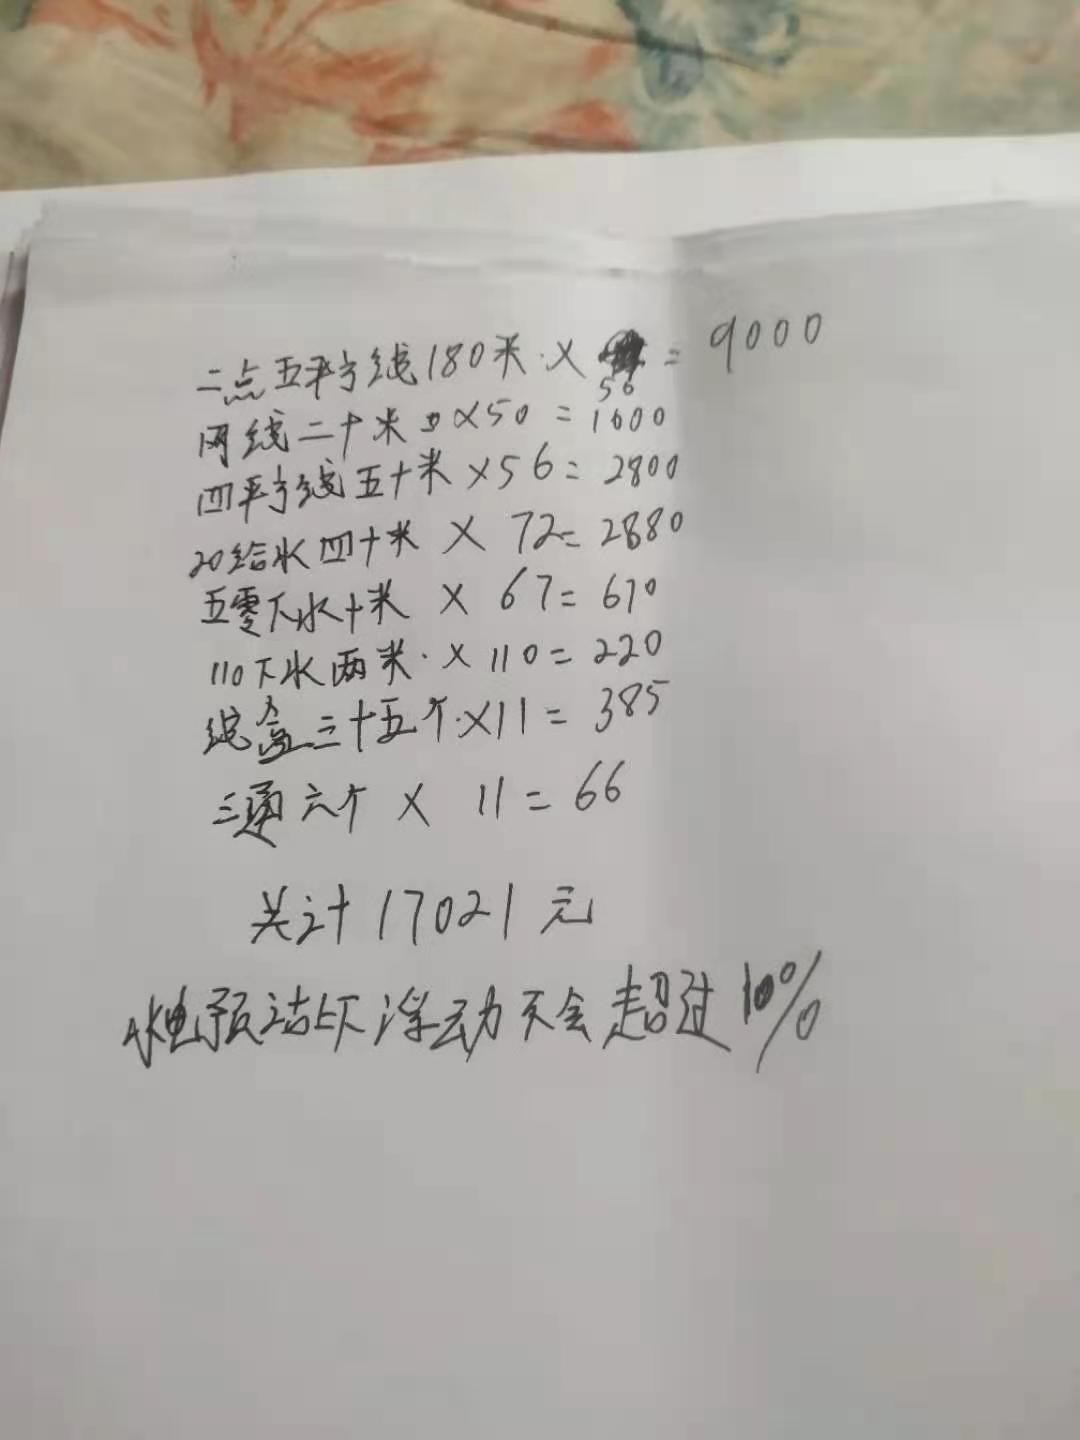 二点五平方线180米.×50=9000
网线二十米×50=1000
四平方线五十米×56=2800
20给水四十米×72=2880
五零下水十米×67=670
110下水两米.×110=220
线盒三十五个.×11=385
三通六个×11=66
共计17021元
水电预估上下浮动不会超过10%